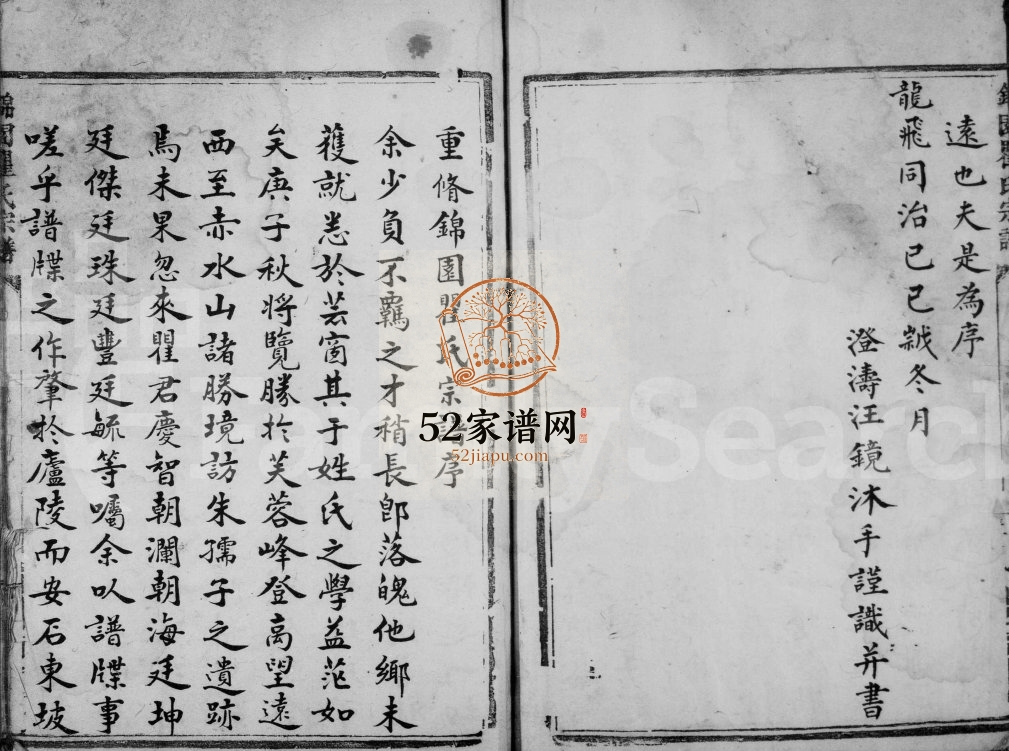 遠也夫是為序
龍飛同治己巳菊冬月
澄濤汪鏡沐手謹識并書
重脩錦園瞿氏宗譜序
余少負不羈之才稍長卽落魄他鄉未
獲就恙於芸窗其于姓氏之學益茫如
矣庚子秋將覽勝於芙蓉峰登高望遠
西至赤水山諸勝境訪朱孺子之遺跡
焉未果忽來瞿君慶智朝瀾朝海廷坤
廷傑廷珠廷豐廷毓等囑余以譜牒事
嗟乎譜牒之作肇於廬陵而安石東坡
錦園瞿氏宗譜
52家谱网
52jiapu.com
FamilySearch